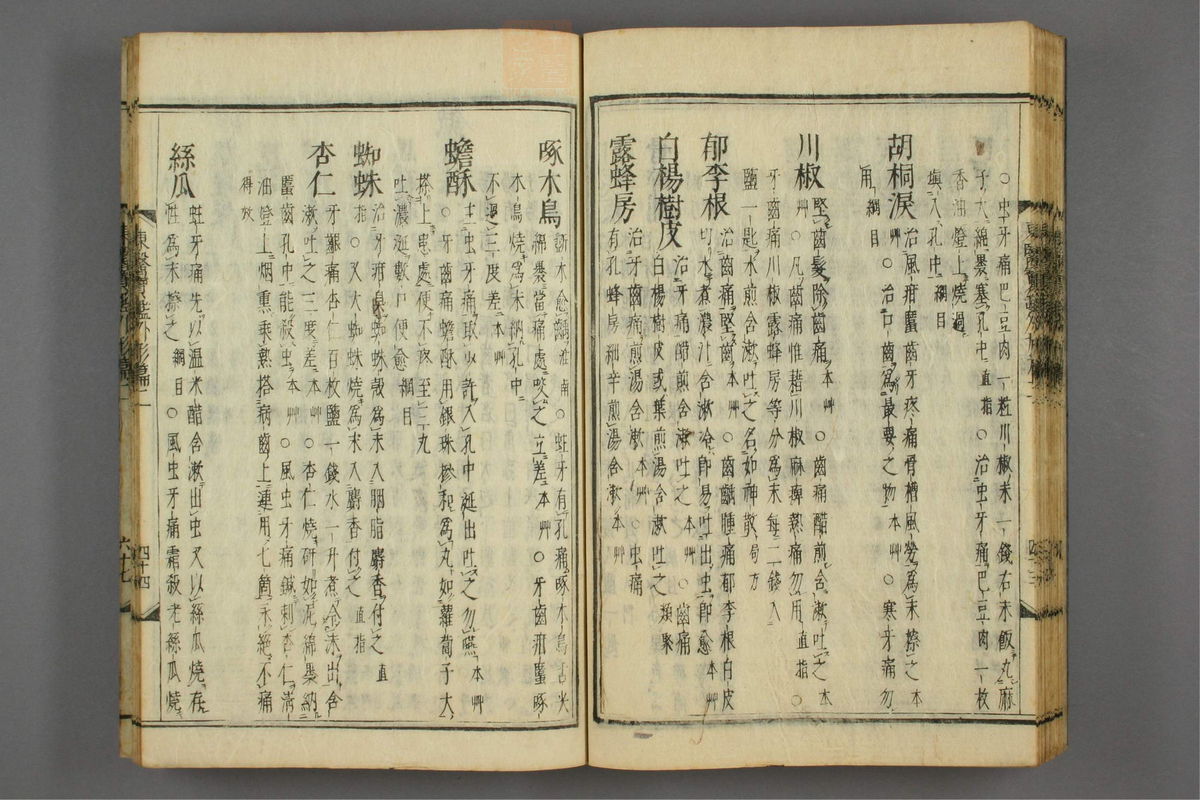 ○虫牙痛巴豆肉一粒川椒末一錢右末飯丸麻
子大綿裹塞孔中直指○治虫牙痛巴豆肉一枚
香油燈上燒過
塡入孔中綱目
胡桐淚治風疳䘌齒牙疼痛骨槽風勞爲末擦之本
艸○治口齒爲最要之物本艸○寒牙痛勿
用綱目
川椒堅齒髮除齒痛本艸○齒痛醋煎含漱吐之本
艸○凡齒痛惟藉川椒麻痺熱痛勿用直指○
牙齒痛川椒露蜂房等分爲末每二錢入
鹽一匙水煎含漱吐之名如神散局方
郁李根治齒痛堅齒本艸○齒齲腫痛郁李根白皮
切水煮濃汁含漱冷卽易吐出虫卽愈本艸
白楊樹皮治牙痛醋煎含漱吐之本艸○齒痛
白楊樹皮或葉煎湯含漱吐之類聚
露蜂房治牙齒痛煎湯含漱本艸○虫痛
有孔蜂房細辛煎湯含漱本艸
啄木鳥斲木愈齲淮南○蚛牙有孔痛啄木鳥舌尖
綿裹當痛處咬之立差本艸○牙齒疳䘌啄
木鳥燒爲末納孔中
不過三度差本艸
蟾酥主虫牙痛取少許入孔中涎出吐之勿嚥本艸
○牙齒痛蟾酥用銀珠摻和爲丸如蘿蔔子大
搽上患處便不疼至三丸
吐濃涎數口便愈綱目
蜘蛛治牙疳臭蜘蛛殼爲末入胭脂麝香付之直
指○又大蜘蛛燒爲末入麝香付之直指
杏仁牙齦痛杏仁百枚鹽一錢水一升煮令沫出含
漱吐之三度差本艸○杏仁燒硏如泥綿裹納
䘌齒孔中能殺虫本艸○風虫牙痛鍼刺杏仁滿
油燈上烟熏乘熱搭病齒上連用七箇永絶不痛
得效
絲瓜蚛牙痛先以溫米醋含漱出虫又以絲瓜燒存
性爲末擦之綱目○風虫牙痛霜殺老絲瓜燒
四十四